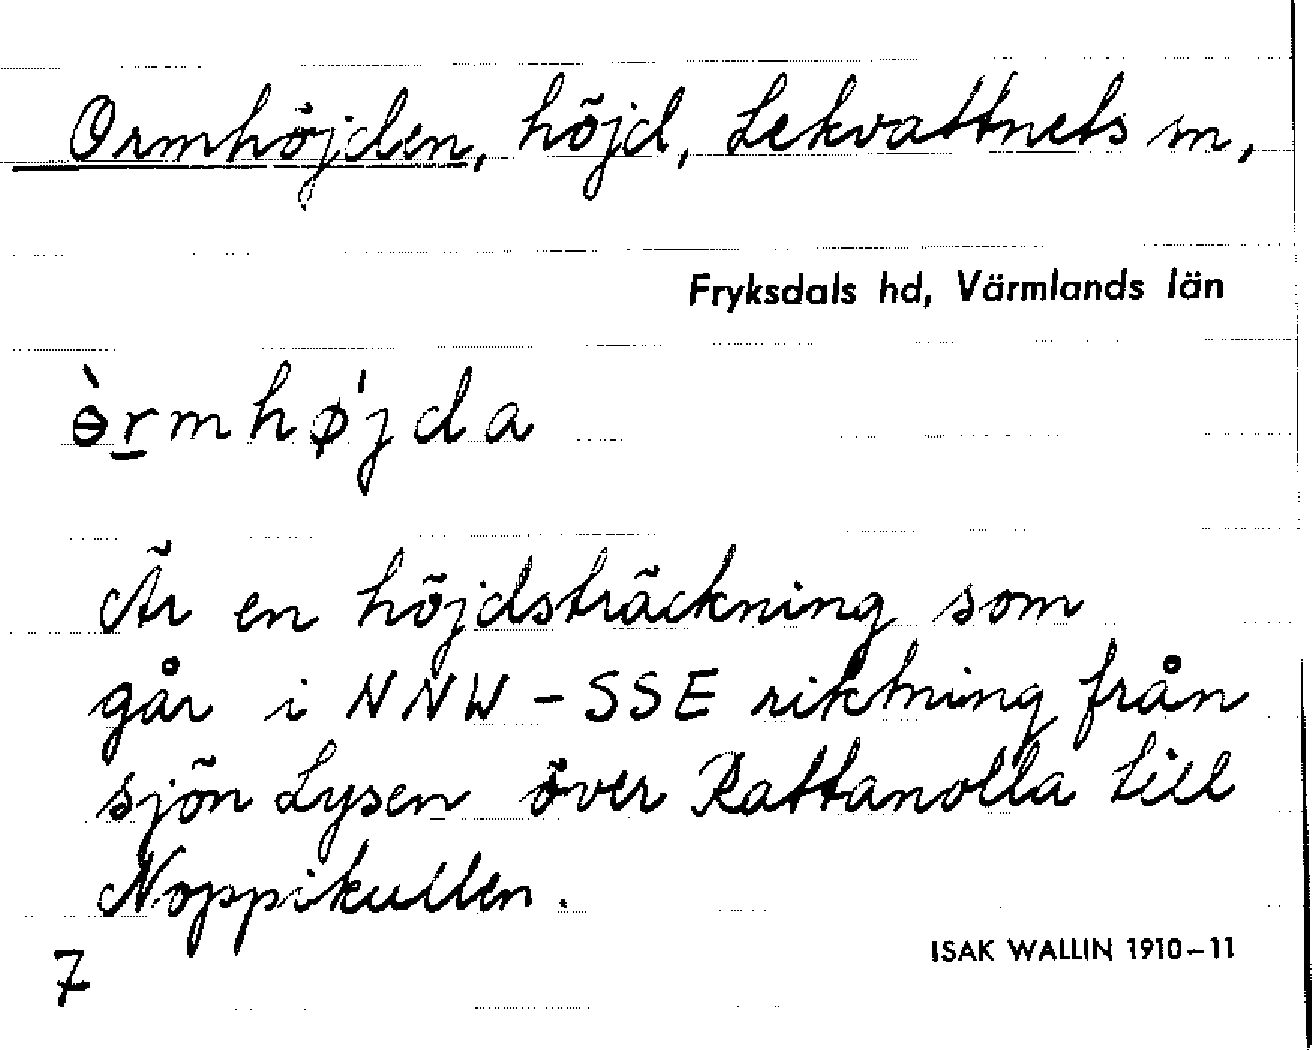 Ormhöjden, höjd, Lekvattnets sn,
Fryksdals hd, Värmlands län
ɵ̀r̲mhø̍jda
Är en höjdsträckning som
går i NNW - SSE riktning från
sjön Lysen över Rattanolla till
Noppikullen.
ISAK WALLIN 1910-11
7